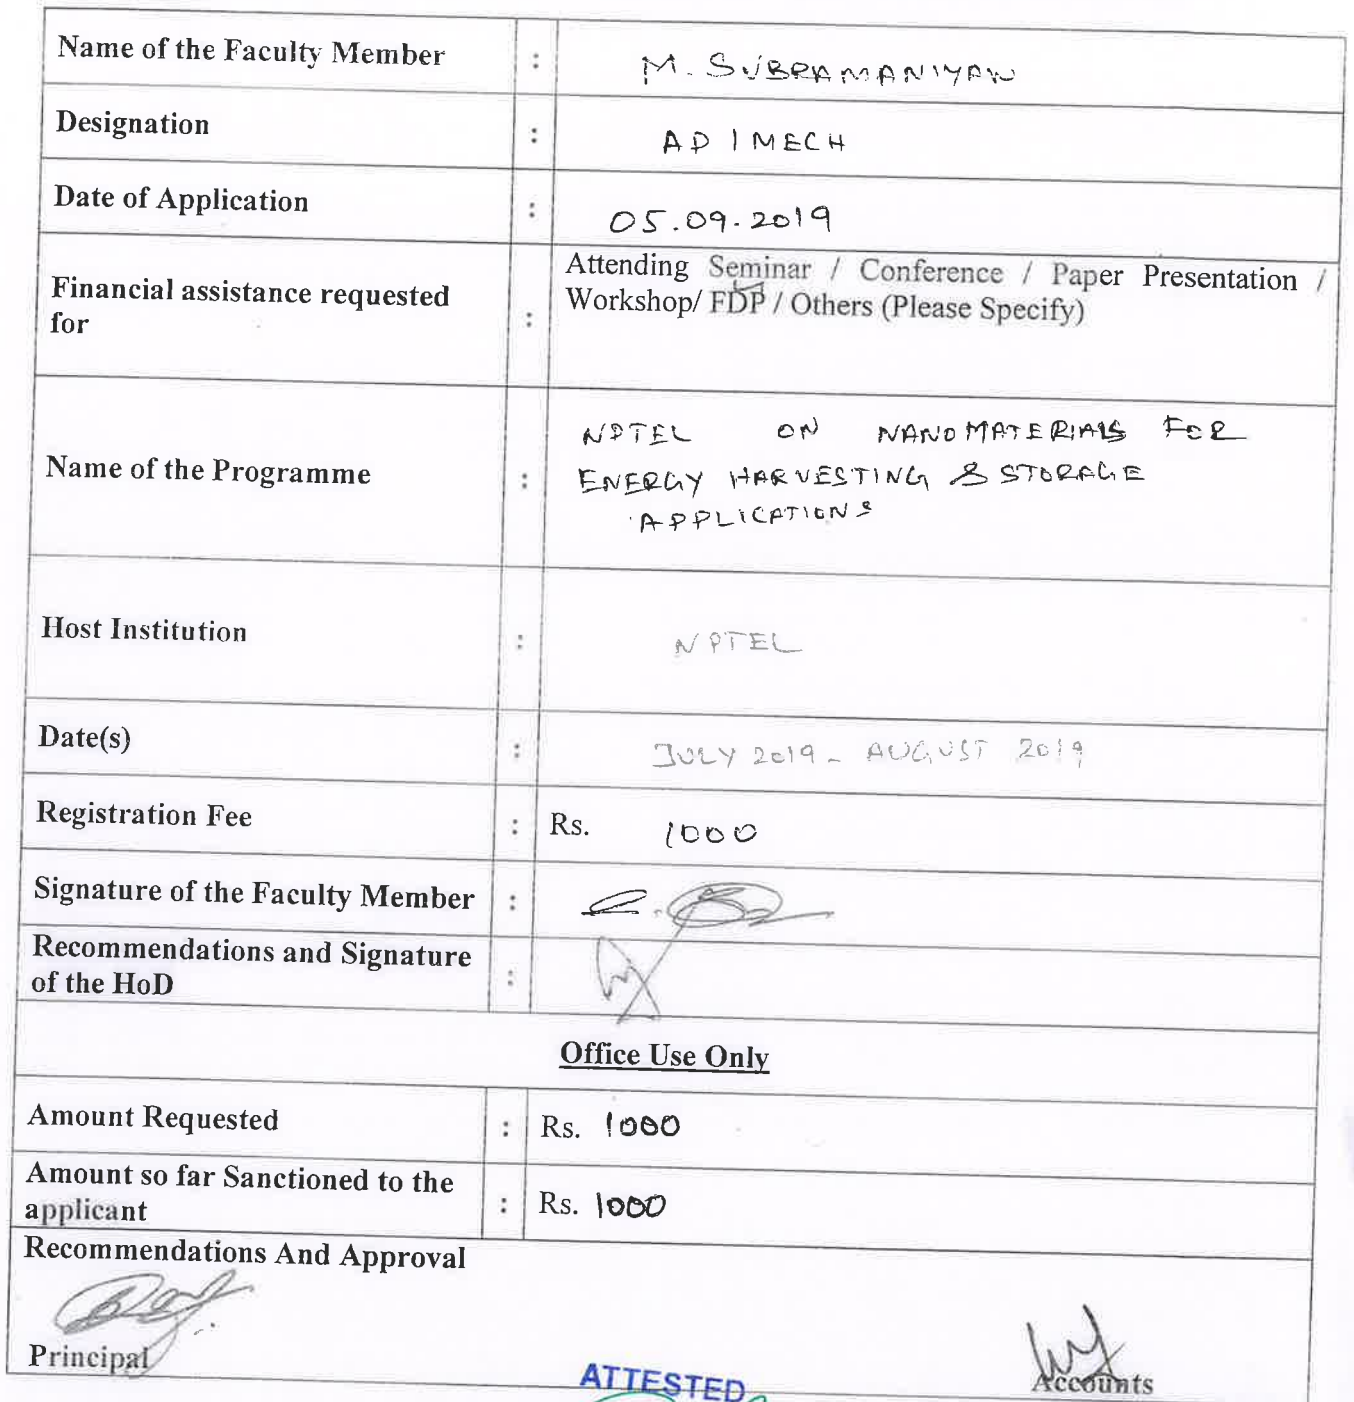 Name of the Faculty Member : M. SUBRAMANIYAN
Designation : AP / MECH
Date of Application : 05.09.2019
Financial assistance requested for : Attending Seminar / Conference / Paper Presentation /
Workshop/ FDP / Others (Please Specify)
Name of the Programme : NPTEL ON NANOMATERIALS FOR
ENERGY HARVESTING & STORAGE
APPLICATIONS
Host Institution : NPTEL
Date(s) : JULY 2019 - AUGUST 2019
Registration Fee : Rs. 1000
Signature of the Faculty Member :
Recommendations and Signature
of the HoD :
Office Use Only
Amount Requested : Rs. 1000
Amount so far Sanctioned to the
applicant : Rs. 1000
Recommendations And Approval
Principal
Accounts
ATTESTED